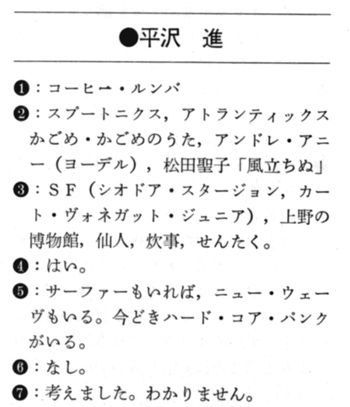 ●平沢 進
❶：コーヒー・ルンバ
❷：スプートニクス，アトランティックス
かごめ・かごめのうた，アンドレ・アニ
ー（ヨーデル），松田聖子「風立ちぬ」
❸：ＳＦ（シオドア・スタージョン，カー
ト・ヴォネガット・ジュニア），上野の
博物館，仙人，炊事，せんたく。
❹：はい。
❺：サーファーもいれば，ニュー・ウェー
ヴもいる。今どきハード・コア・パンク
がいる。
❻：なし。
❼：考えました。わかりません。